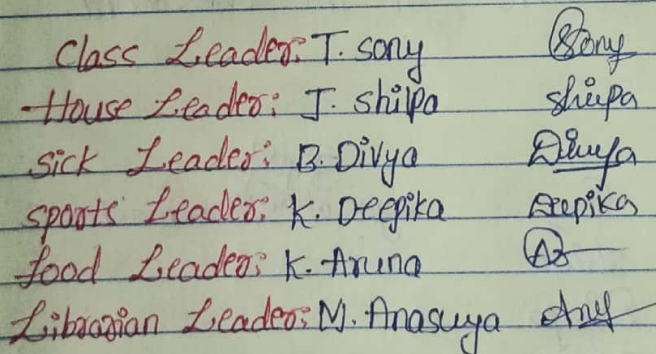 Class Leader: T. sony Sony
House Leader: J. shilpa shilpa
sick Leader: B. Divya Divya
sports Leader: K. Deepika Deepika
food Leader: K. Aruna
Librarian Leader: M. Anasuya